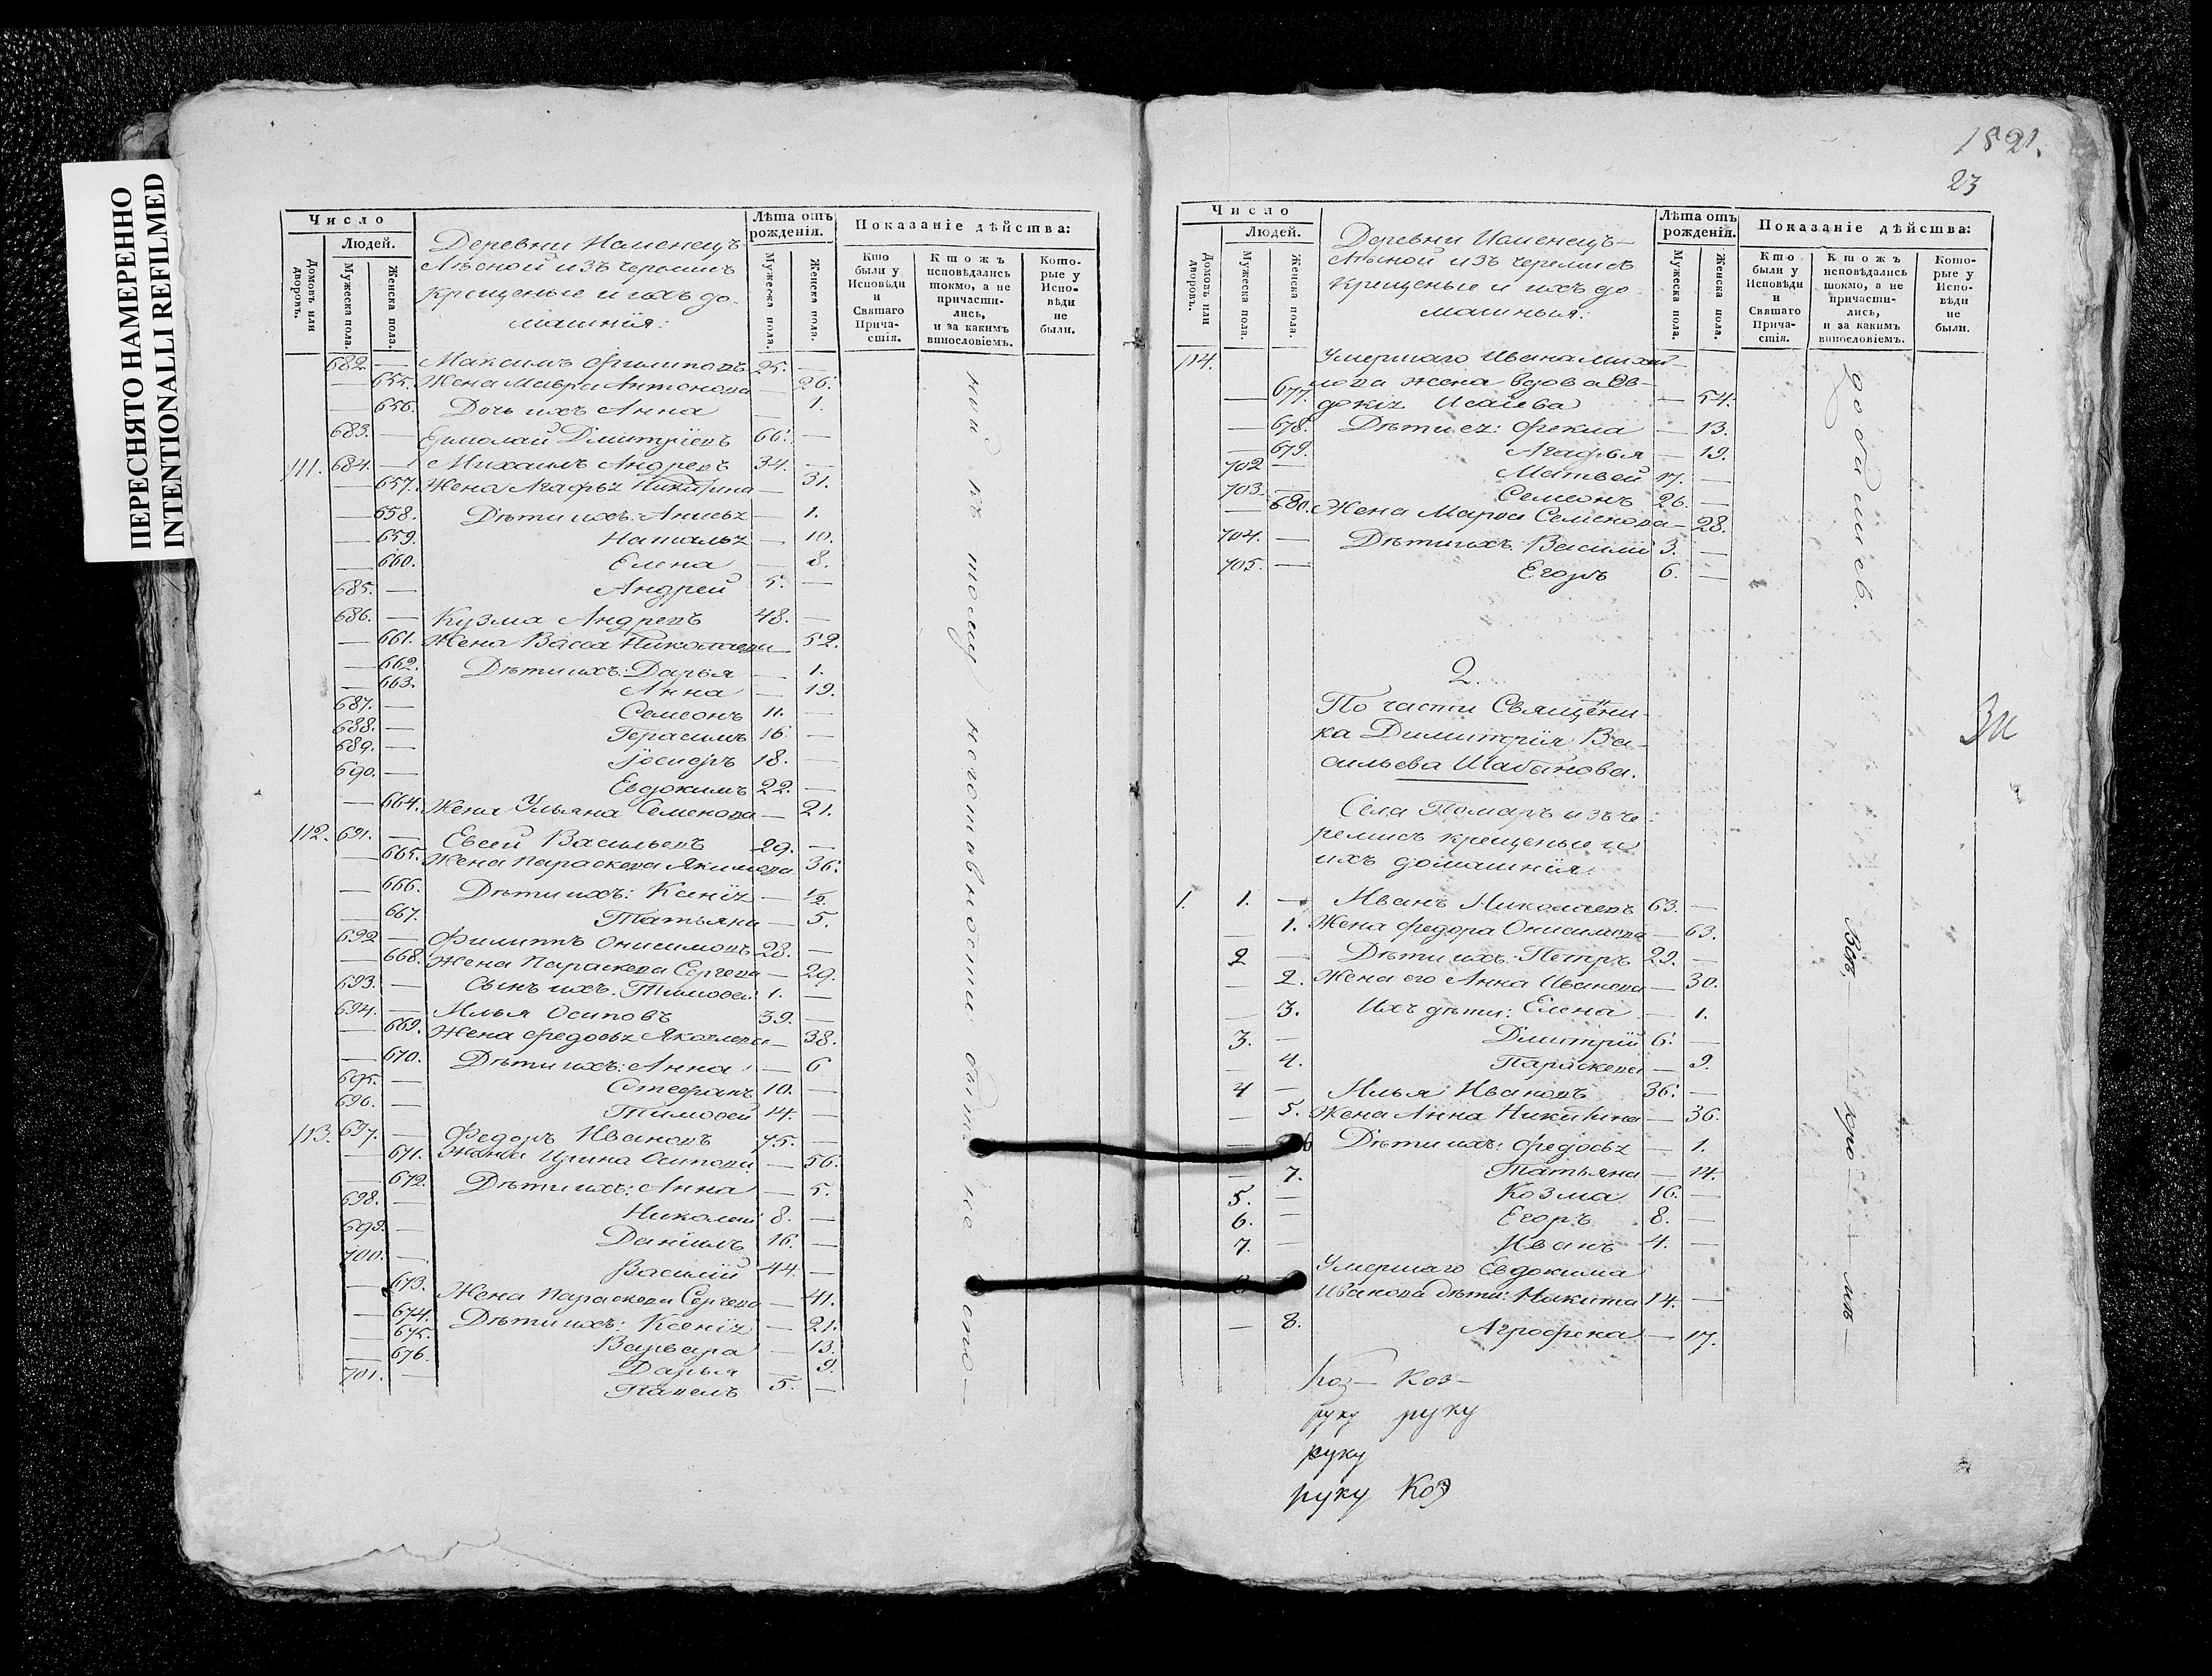 ПЕРЕСНЯТО НАМЕРЕННО
INTENTIONALLI REFILMED
Число
Людей.
Домовъ или дворовъ.
Мужеска пола.
Женска пола.
Деревни
Лѣсной изъ черемисъ
крещеныя и ихъ до-
машнія:
Лѣта отъ рожденія.
Мужеска пола.
Женска пола.
Показаніе дѣйства:
Кто были у Исповѣди и Святаго Прича-стія.
Ктожъ исповѣдались токмо, а не причасти-лись, и за какимъ винословіемъ.
Кото-рые у Испо-вѣди не были.
682. — Максимъ Филиповъ 25. —
— 655. Жена Мавра Антонова — 26.
— 656. Дочь ихъ Анна — 1.
683. — Ермолай Дмитріевъ 66. —
111. 684. — Михаилъ Андреевъ 34. —
— 657. Жена Агафья Никитина — 31.
— 658. Дѣти ихъ: Анисья — 1.
— 659. Наталья — 10.
— 660. Елена — 8.
685. — Андрей 5. —
686. — Кузма Андреевъ 48. —
— 661. Жена Васса Николаева — 52.
— 662. Дѣти ихъ: Дарья — 1.
— 663. Анна — 19.
687. — Семеонъ 11. —
688. — Герасимъ 16. —
689. — Іосифъ 18. —
690. — Евдокимъ 22. —
— 664. Жена Ульяна Семенова — 21.
112. 691. — Евсей Васильевъ 29. —
— 665. Жена Параскева Якимова 36.
— 666. Дѣти ихъ: Ксенія — ½.
— 667. Татьяна — 5.
692 — Филиппъ Онисимовъ 28. —
— 668. Жена Параскева Сергеева — 29.
693. — Сынъ ихъ Тимофей 1. —
694. — Илья Осиповъ 39. —
— 669. Жена Федосья Яковлева — 38.
— 670. Дѣти ихъ: Анна — 6
695. — Стефанъ 10. —
696. — Тимофей 14. —
113. 697. — Федоръ Ивановъ 75. —
— 671. Жена Ирина Осипова — 56.
— 672. Дѣти ихъ: Анна — 5.
698. — Николай 8. —
699. — Даніилъ 16. —
700. — Василій 44. —
— 673. Жена Параскева Сергеева — 41.
— 674. Дѣти ихъ: Ксенія — 21.
— 675. Варвара — 13.
— 676. Дарья — 9.
701. — Павелъ 5. —
къ тому неготовности
1821.
23
Число
Людей.
Домовъ или дворовъ.
Мужеска пола.
Женска пола.
Деревни
Лѣсной изъ черемисъ
крещеныя и ихъ до
машныя:
Лѣта отъ рожденія.
Мужеска пола.
Женска пола.
Показаніе дѣйства:
Кто были у Исповѣди и Святаго Прича-стія.
Ктожъ исповѣдались токмо, а не причасти-лись, и за какимъ винословіемъ.
Кото-рые у Испо-вѣди не были.
114. Умершаго Ивана Михай-
лова жена вдова Ев-
— 677. докія Исаева — 54.
— 678. Дѣти ея: Фекла — 13.
— 679. Агафья — 19.
702 — Матвей 17. —
703. — Семеонъ 26. —
— 680. Жена Марья Семенова — 28.
704. — Дѣти ихъ Василій 3. —
705. — Егоръ 6. —
2.
По части Священи-
ка Димитрія Ва-
сильева Шабанова.
Села Помаръ изъ че-
ремисъ крещеныя и
ихъ домашнія.
1. 1. — Иванъ Николаевъ 63. —
— 1. Жена Федора Онисимова — 63.
2 — Дѣти ихъ: Петръ 29. —
— 2. Жена его Анна Иванова — 30.
— 3. Ихъ дѣти: Елена — 1.
3. — Дмитрій 6. —
— 4. Параскева — 9.
4 — Илья Ивановъ 36. —
— 5. Жена Анна Никитина — 36.
— 6 Дѣти ихъ: Федосья — 1.
— 7. Татьяна — 14.
5. — Козма 16. —
6. — Егоръ 8. —
7. — Иванъ 4. —
Умершаго Евдокима
Иванова дѣти: Никита 14. —
— 8. Агрофена — 17.
Коз— Коз—
руку руку
руку
руку Коз